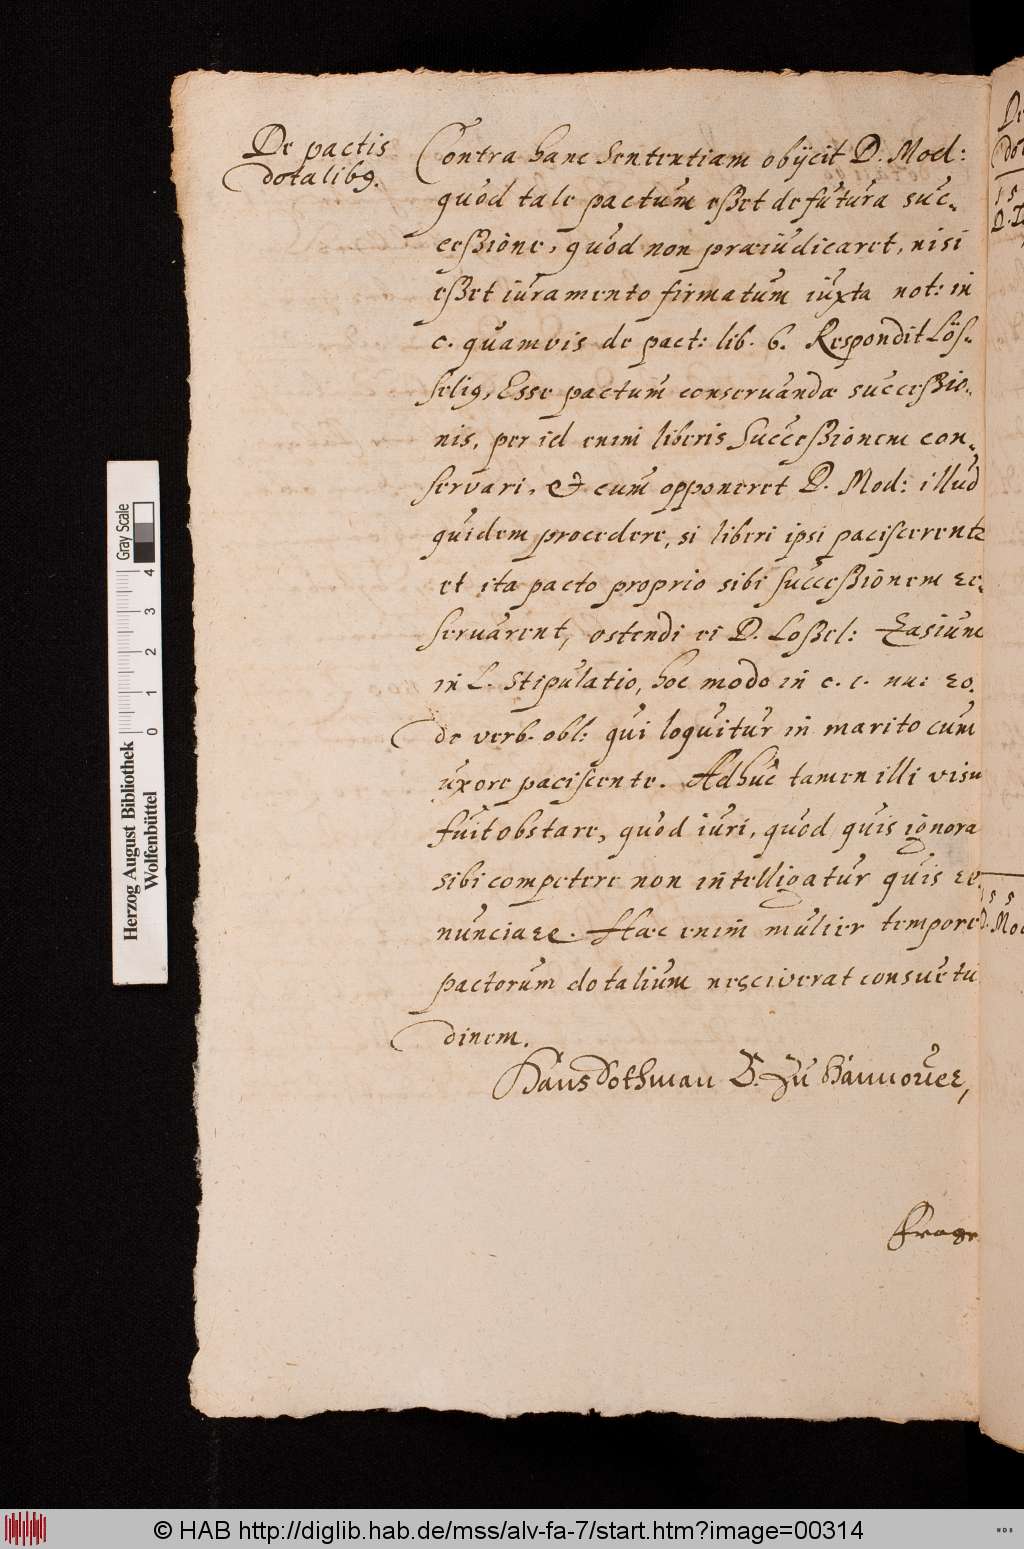 De pactis
dotalibꝯ.
Contra hanc Sententiam obijcit D. Mod:
quod tale pactum eßet de futura suc-
ceßione, quod non præiudicaret, nisi
eßet iuramento firmatum iuxta not: in
c. quamvis de pact: lib. 6. Respondit Löſ-
ſeliꝯ, Esse pactum conservandæ succeßio-
nis, per id enim liberis Succeßionem con-
ſervari, & cum opponeret D. Mod: illud
quidem procedere, si liberi ipsi paciſcerent
et ita pacto proprio sibi ſucceßionem re-
ſervarent, ostendi ei D. Loßel: Zasium
in L. Stipulatio, hoc modo in c. c. nu: 20.
de verb. obl: qui loquitur in marito cum
uxore paciſcente. Adhuc tamen illi visu
fuit obstare, quod iuri, quod quis ignora
sibi competere non intelligatur quis re-
nunciare. Hæc enim mulier tempore
pactorum dotalium nesciverat consuetu
dinem.
Hans Hothman B. Zu Hannover,
Frage
De
dot
15
D. L
55
D. Mod
Herzog August Bibliothek
Wolfenbüttel
0 1 2 3 4
Gray Scale
© HAB http://diglib.hab.de/mss/alv-fa-7/start.htm?image=00314